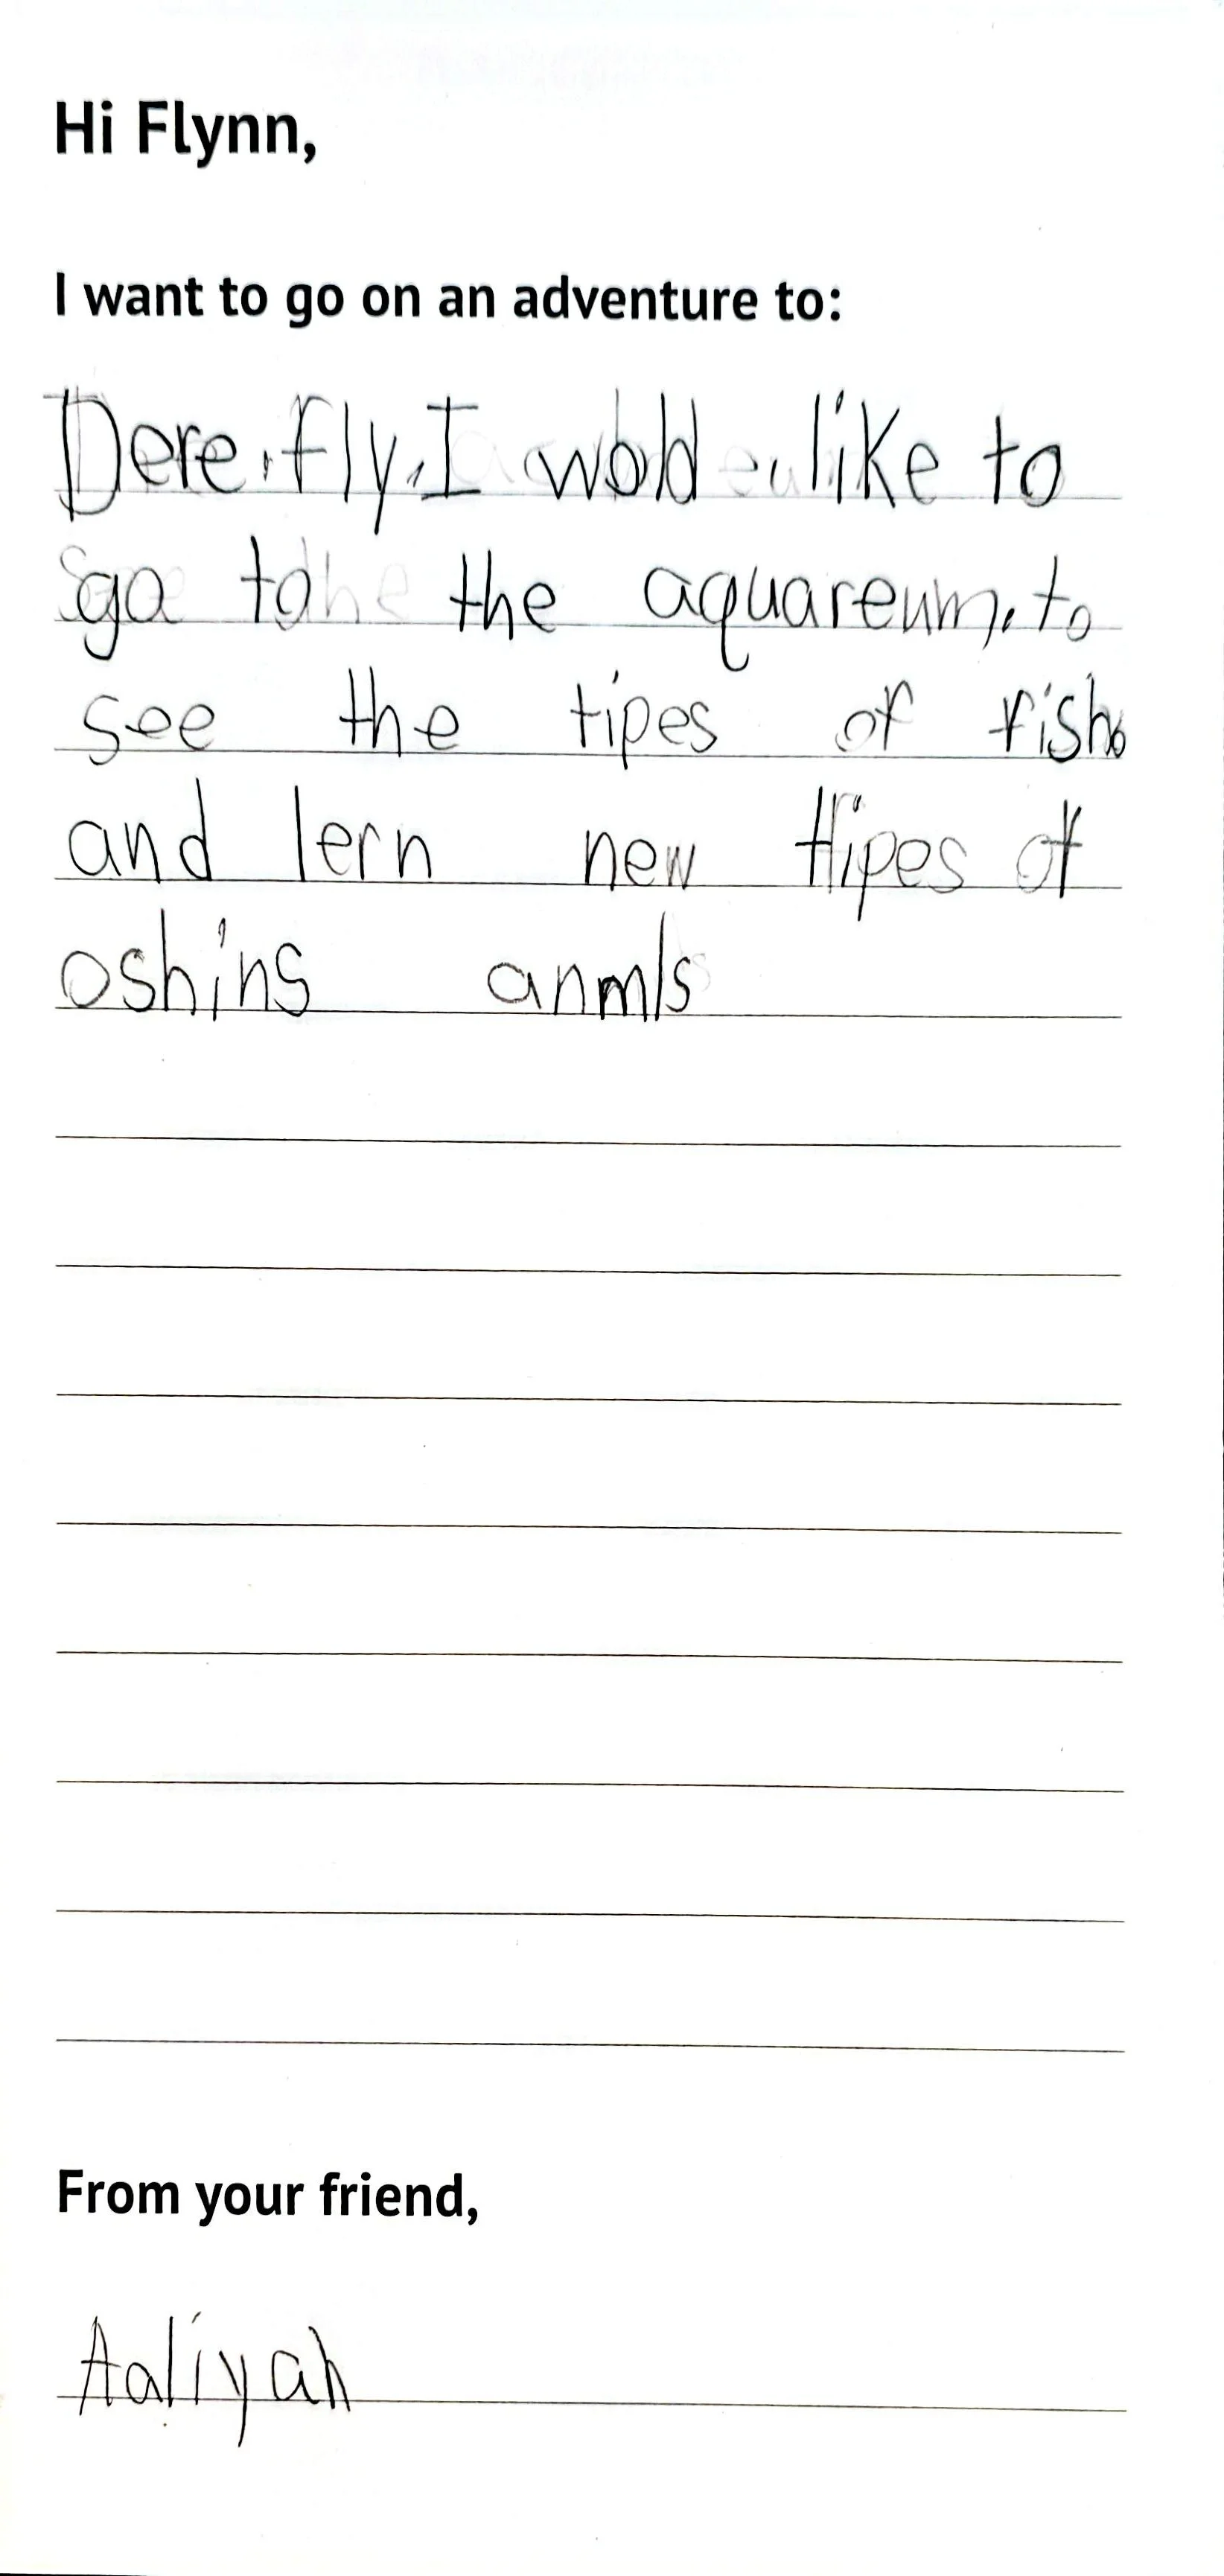 Hi Flynn,
I want to go on an adventure to:
Dere, fly, I wold like to
go to the aquareum, to
see the tipes of fish
and lern new tipes of
oshins anmls
From your friend,
Aaliyah